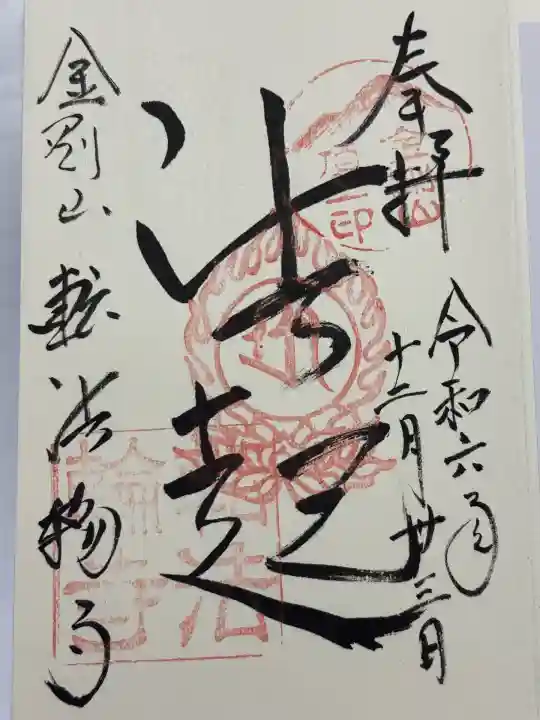 奉拝
令和六年
十二月廿三日
法起
金剛山 転法輪寺